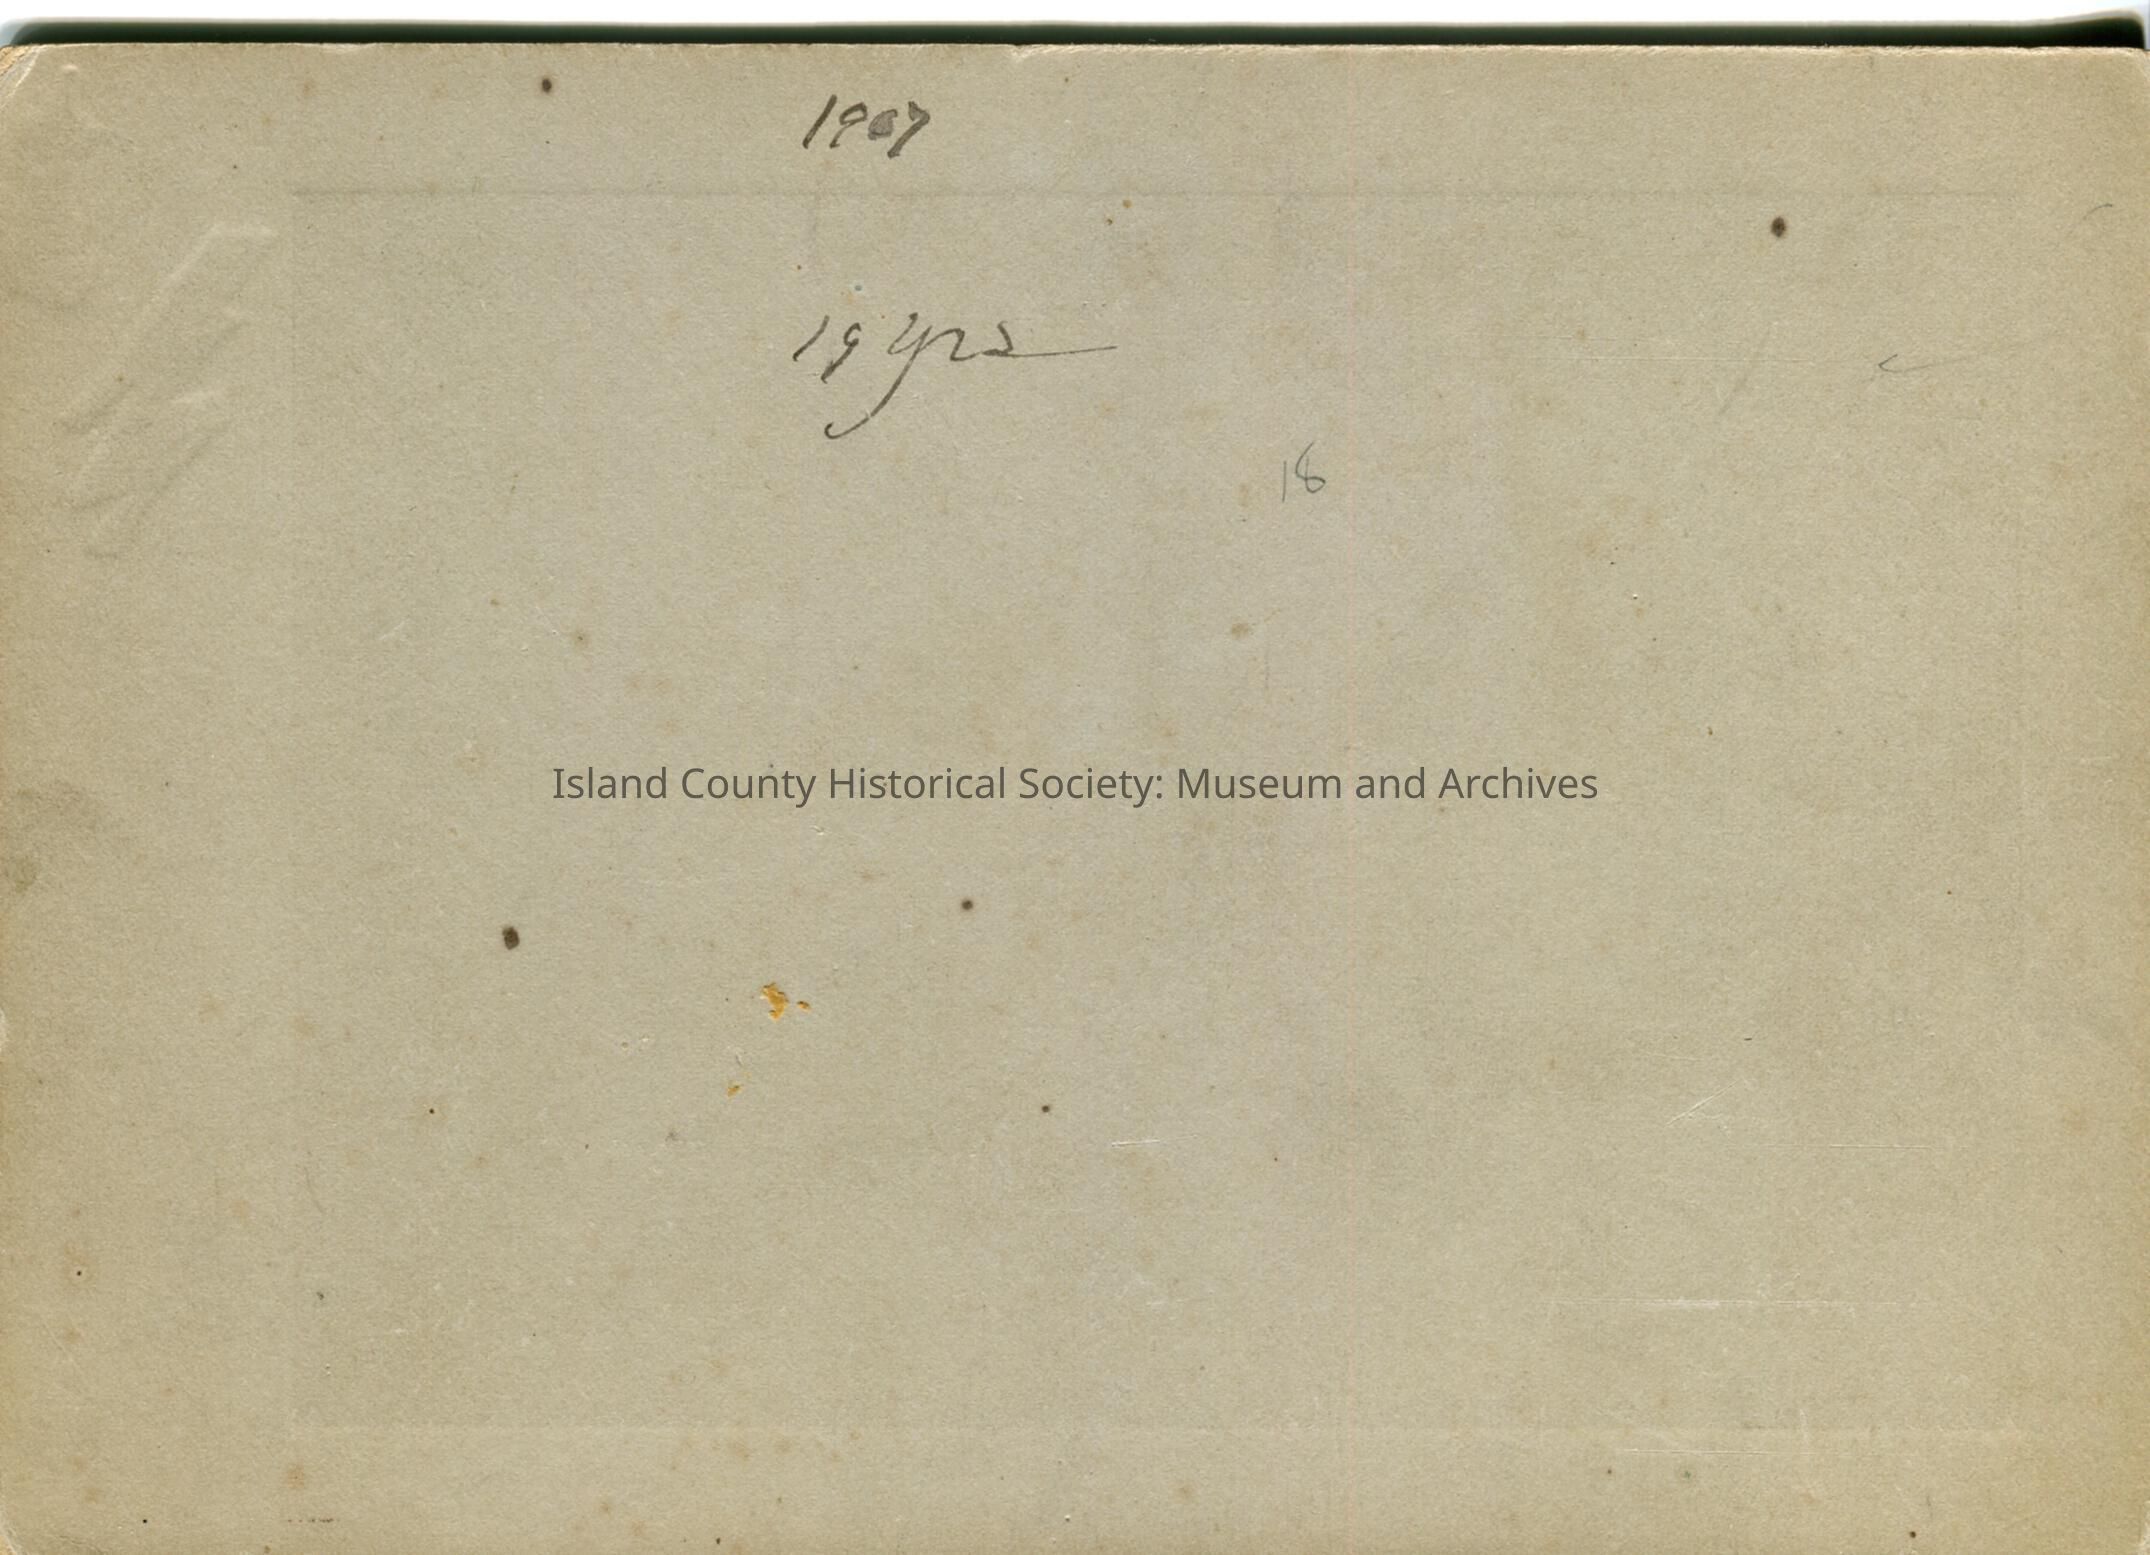 1907
19 yrs
18
Island County Historical Society: Museum and Archives